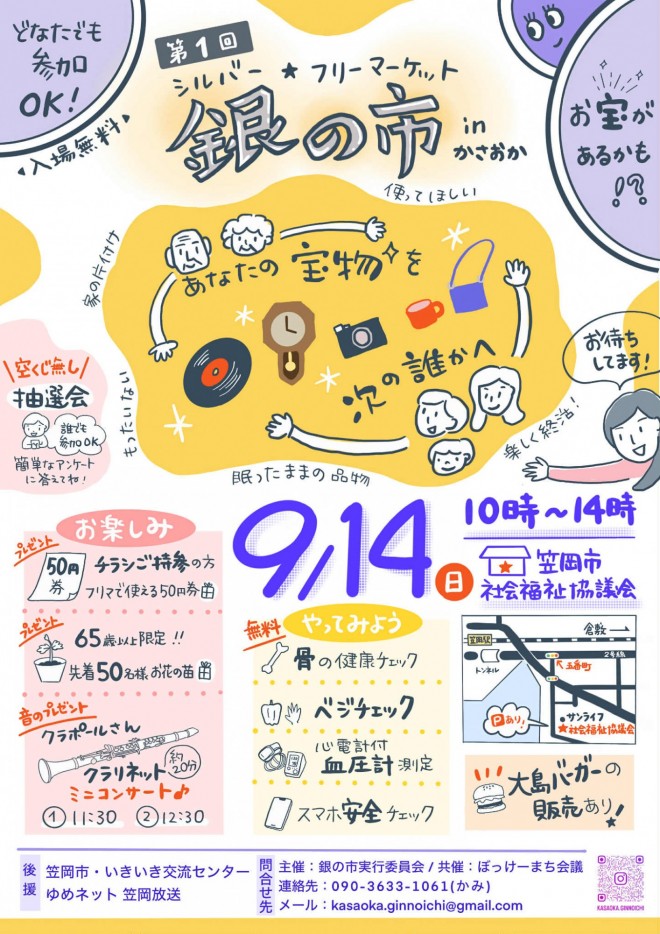 どなたでも
参加
OK!
入場無料
第1回
シルバー★フリーマーケット
銀の市 in かさおか
お宝が
あるかも
!?
使ってほしい
家の片付け
もったいない
眠ったままの品物
楽しく終活!
あなたの宝物を
次の誰かへ
お待ち
してます!
空くじ無し
抽選会
誰でも
参加OK
簡単なアンケート
に答えてね!
お楽しみ
プレゼント
50円
券
チラシご持参の方
フリマで使える50円券
プレゼント
65歳以上限定!!
先着50名様お花の苗
音のプレゼント
クラポールさん
クラリネット
約
20分
ミニコンサート♪
①11:30 ②12:30
9/14日
10時~14時
笠岡市
社会福祉協議会
無料
やってみよう
骨の健康チェック
ベジチェック
心電計付
血圧計測定
スマホ安全チェック
倉敷→
笠岡駅
2号線
トンネル
五番町
Pあり!
サンライフ
★社会福祉協議会
大島バーガーの
販売あり!
後援
笠岡市・いきいき交流センター
ゆめネット 笠岡放送
問合せ先
主催:銀の市実行委員会 / 共催:ぼっけーまち会議
連絡先:090-3633-1061(かみ)
メール:kasaoka.ginnoichi@gmail.com
KASAOKA.GINNOICHI